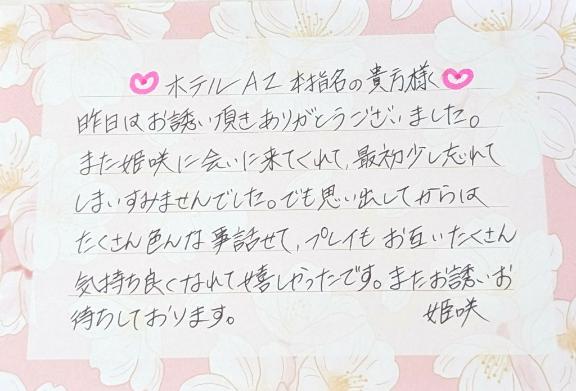 ホテルAZ 本指名の貴方様く
昨日はお誘い頂きありがとうございました。
また姫咲に会いに来てくれて、最初少し忘れて
しまいすみませんでした。でも思い出してからは
たくさん色んな事話せて、プレイもお互いたくさん
気持ち良くなれて嬉しかったです。またお誘いお
待ちしております。 姫咲